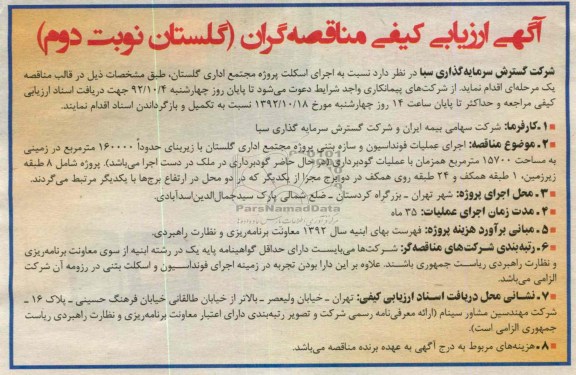 آگهی ارزیابی کیفی مناقصه‌گران (گلستان نوبت دوم)
شرکت گسترش سرمایه‌گذاری سبا در نظر دارد نسبت به اجرای اسکلت پروژه مجتمع اداری گلستان، طبق مشخصات ذیل در قالب مناقصه
یک مرحله‌ای اقدام نماید. از شرکت‌های پیمانکاری واجد شرایط دعوت می‌شود تا پایان روز چهارشنبه ۹۲/۱۰/۴ جهت دریافت اسناد ارزیابی
کیفی مراجعه و حداکثر تا پایان ساعت ۱۴ روز چهارشنبه مورخ ۱۳۹۲/۱۰/۱۸ نسبت به تکمیل و بازگرداندن اسناد اقدام نمایند.
۱ـ کارفرما: شرکت سهامی بیمه ایران و شرکت گسترش سرمایه گذاری سبا
۲ـ موضوع مناقصه: اجرای عملیات فونداسیون و سازه بتنی پروژه مجتمع اداری گلستان با زیربنای حدوداً ۱۶۰۰۰۰ مترمربع در زمینی
به مساحت ۱۵۷۰۰ مترمربع همزمان با عملیات گودبرداری (در حال حاضر گودبرداری در ملک در دست اجرا می‌باشد). پروژه شامل ۸ طبقه
زیرزمین، ۱ طبقه همکف و ۲۴ طبقه روی همکف در دو برج مجزا از یکدیگر که در دو محل در ارتفاع برج‌ها با یکدیگر مرتبط می‌گردند.
۳ـ محل اجرای پروژه: شهر تهران ـ بزرگراه کردستان ـ ضلع شمالی پارک سیدجمال‌الدین‌اسدآبادی.
۴ـ مدت زمان اجرای عملیات: ۳۵ ماه
ParsNamadData
۵ـ مبانی برآورد هزینه پروژه: فهرست بهای ابنیه سال ۱۳۹۲ معاونت برنامه‌ریزی و نظارت راهبردی.
۶ـ رتبه‌بندی شرکت‌های مناقصه‌گر: شرکت‌ها می‌بایست دارای حداقل گواهینامه پایه یک در رشته ابنیه از سوی معاونت برنامه‌ریزی
و نظارت راهبردی ریاست جمهوری باشند. علاوه بر این دارا بودن تجربه در زمینه اجرای فونداسیون و اسکلت بتنی در رزومه آن شرکت
الزامی می‌باشد.
۷ـ نشانی محل دریافت اسناد ارزیابی کیفی: تهران ـ خیابان ولیعصر ـ بالاتر از خیابان طالقانی خیابان فرهنگ حسینی ـ پلاک ۱۶ ـ
شرکت مهندسین مشاور سینام (ارائه معرفی‌نامه رسمی شرکت و تصویر رتبه‌بندی دارای اعتبار معاونت برنامه‌ریزی و نظارت راهبردی ریاست
جمهوری الزامی است).
۸ـ هزینه‌های مربوط به درج آگهی به عهده برنده مناقصه می‌باشد.